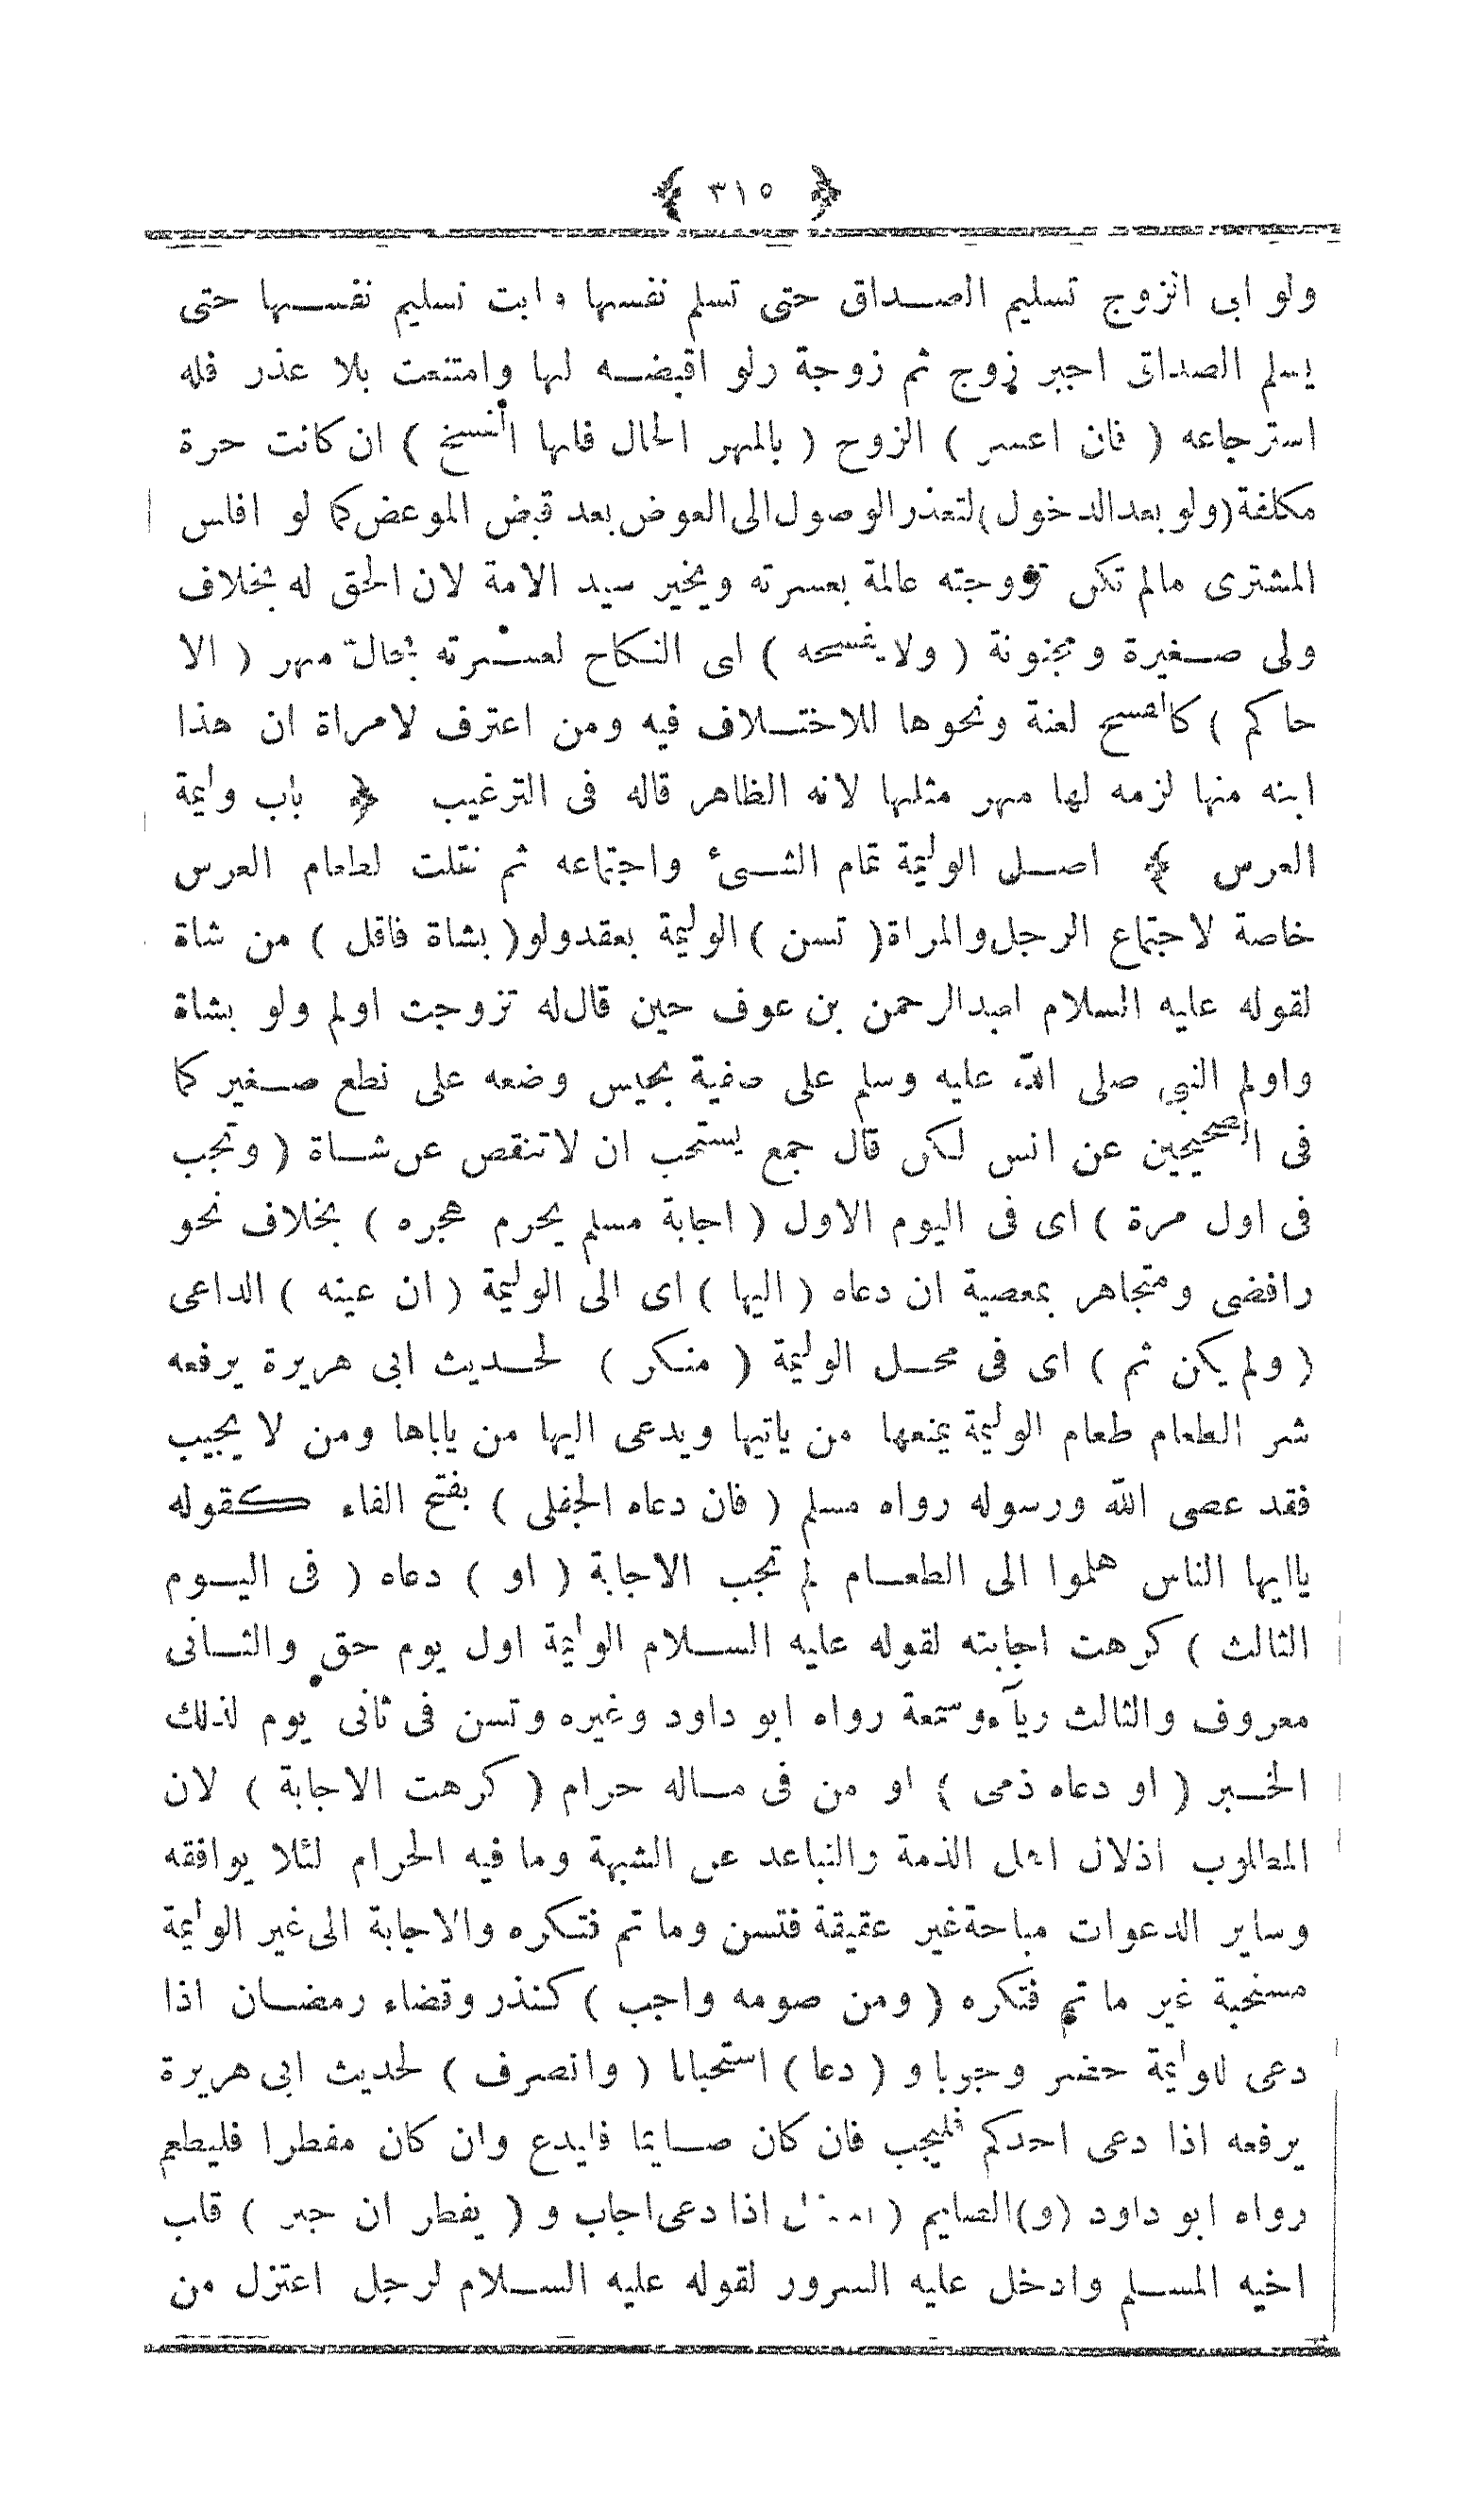 ﴿ ٣١٥ ﴾
ولو ابى الزوج تسليم الصداق حتى تسلم نفسها وابت تسليم نفسها حتى
يسلم الصداق اجبر زوج ثم زوجة ولو اقبضه لها وامتنعت بلا عذر فله
استرجاعه ( فان اعسر ) الزوج ( بالمهر الحال فلها الفسخ ) ان كانت حرة
مكلفة ( ولو بعد الدخول ) لتعذر الوصول الى العوض بعد قبض الموعض كما لو افلس
المشترى مالم تكن تزوجته عالمة بعسرته ويخير سيد الامة لان الحق له بخلاف
ولى صغيرة ومجنونة ( ولا يفسخه ) اى النكاح لعسرته بحال مهر ( الا
حاكم ) كالفسخ لعنة ونحوها للاختلاف فيه ومن اعترف لامراة ان هذا
ابنه منها لزمه لها مهر مثلها لانه الظاهر قاله فى الترغيب ﴿ باب وليمة
العرس ﴾ اصل الوليمة تمام الشئ واجتماعه ثم نقلت لطعام العرس
خاصة لاجتماع الرجل والمراة ( تسن ) الوليمة بعقد ولو ( بشاة فاقل ) من شاة
لقوله عليه السلام لعبدالرحمن بن عوف حين قال له تزوجت اولم ولو بشاة
واولم النبى صلى الله عليه وسلم على صفية بحيس وضعه على نطع صغير كما
فى الصحيحين عن انس لكن قال جمع يستحب ان لاتنقص عن شاة ( وتجب
فى اول مرة ) اى فى اليوم الاول ( اجابة مسلم يحرم هجره ) بخلاف نحو
رافضى ومتجاهر بمعصية ان دعاه ( اليها ) اى الى الوليمة ( ان عينه ) الداعى
( ولم يكن ثم ) اى فى محل الوليمة ( منكر ) لحديث ابى هريرة يرفعه
شر الطعام طعام الوليمة يمنعها من ياتيها ويدعى اليها من ياباها ومن لا يجيب
فقد عصى الله ورسوله رواه مسلم ( فان دعاه الجفلى ) بفتح الفاء كقوله
ياايها الناس هلموا الى الطعام لم تجب الاجابة ( او ) دعاه ( فى اليوم
الثالث ) كرهت اجابته لقوله عليه السلام الوليمة اول يوم حق والثانى
معروف والثالث ريآء وسمعة رواه ابو داود وغيره وتسن فى ثانى يوم لذلك
الخبر ( او دعاه ذمى ) او من فى ماله حرام ( كرهت الاجابة ) لان
المطلوب اذلال اهل الذمة والتباعد عن الشبهة وما فيه الحرام لئلا يوافقه
وساير الدعوات مباحة غير عقيقة فتسن وماتم فتكره والاجابة الى غير الوليمة
مستحبة غير ماتم فتكره ( ومن صومه واجب ) كنذر وقضاء رمضان اذا
دعى للوليمة حضر وجوبا و ( دعا ) استحبابا ( وانصرف ) لحديث ابى هريرة
يرفعه اذا دعى احدكم فليجب فان كان صايما فليدع وان كان مفطرا فليطعم
رواه ابو داود ( و ) الصايم ( المتنفل اذا دعى اجاب و ( يفطر ان جبر ) قلب
اخيه المسلم وادخل عليه السرور لقوله عليه السلام لرجل اعتزل من